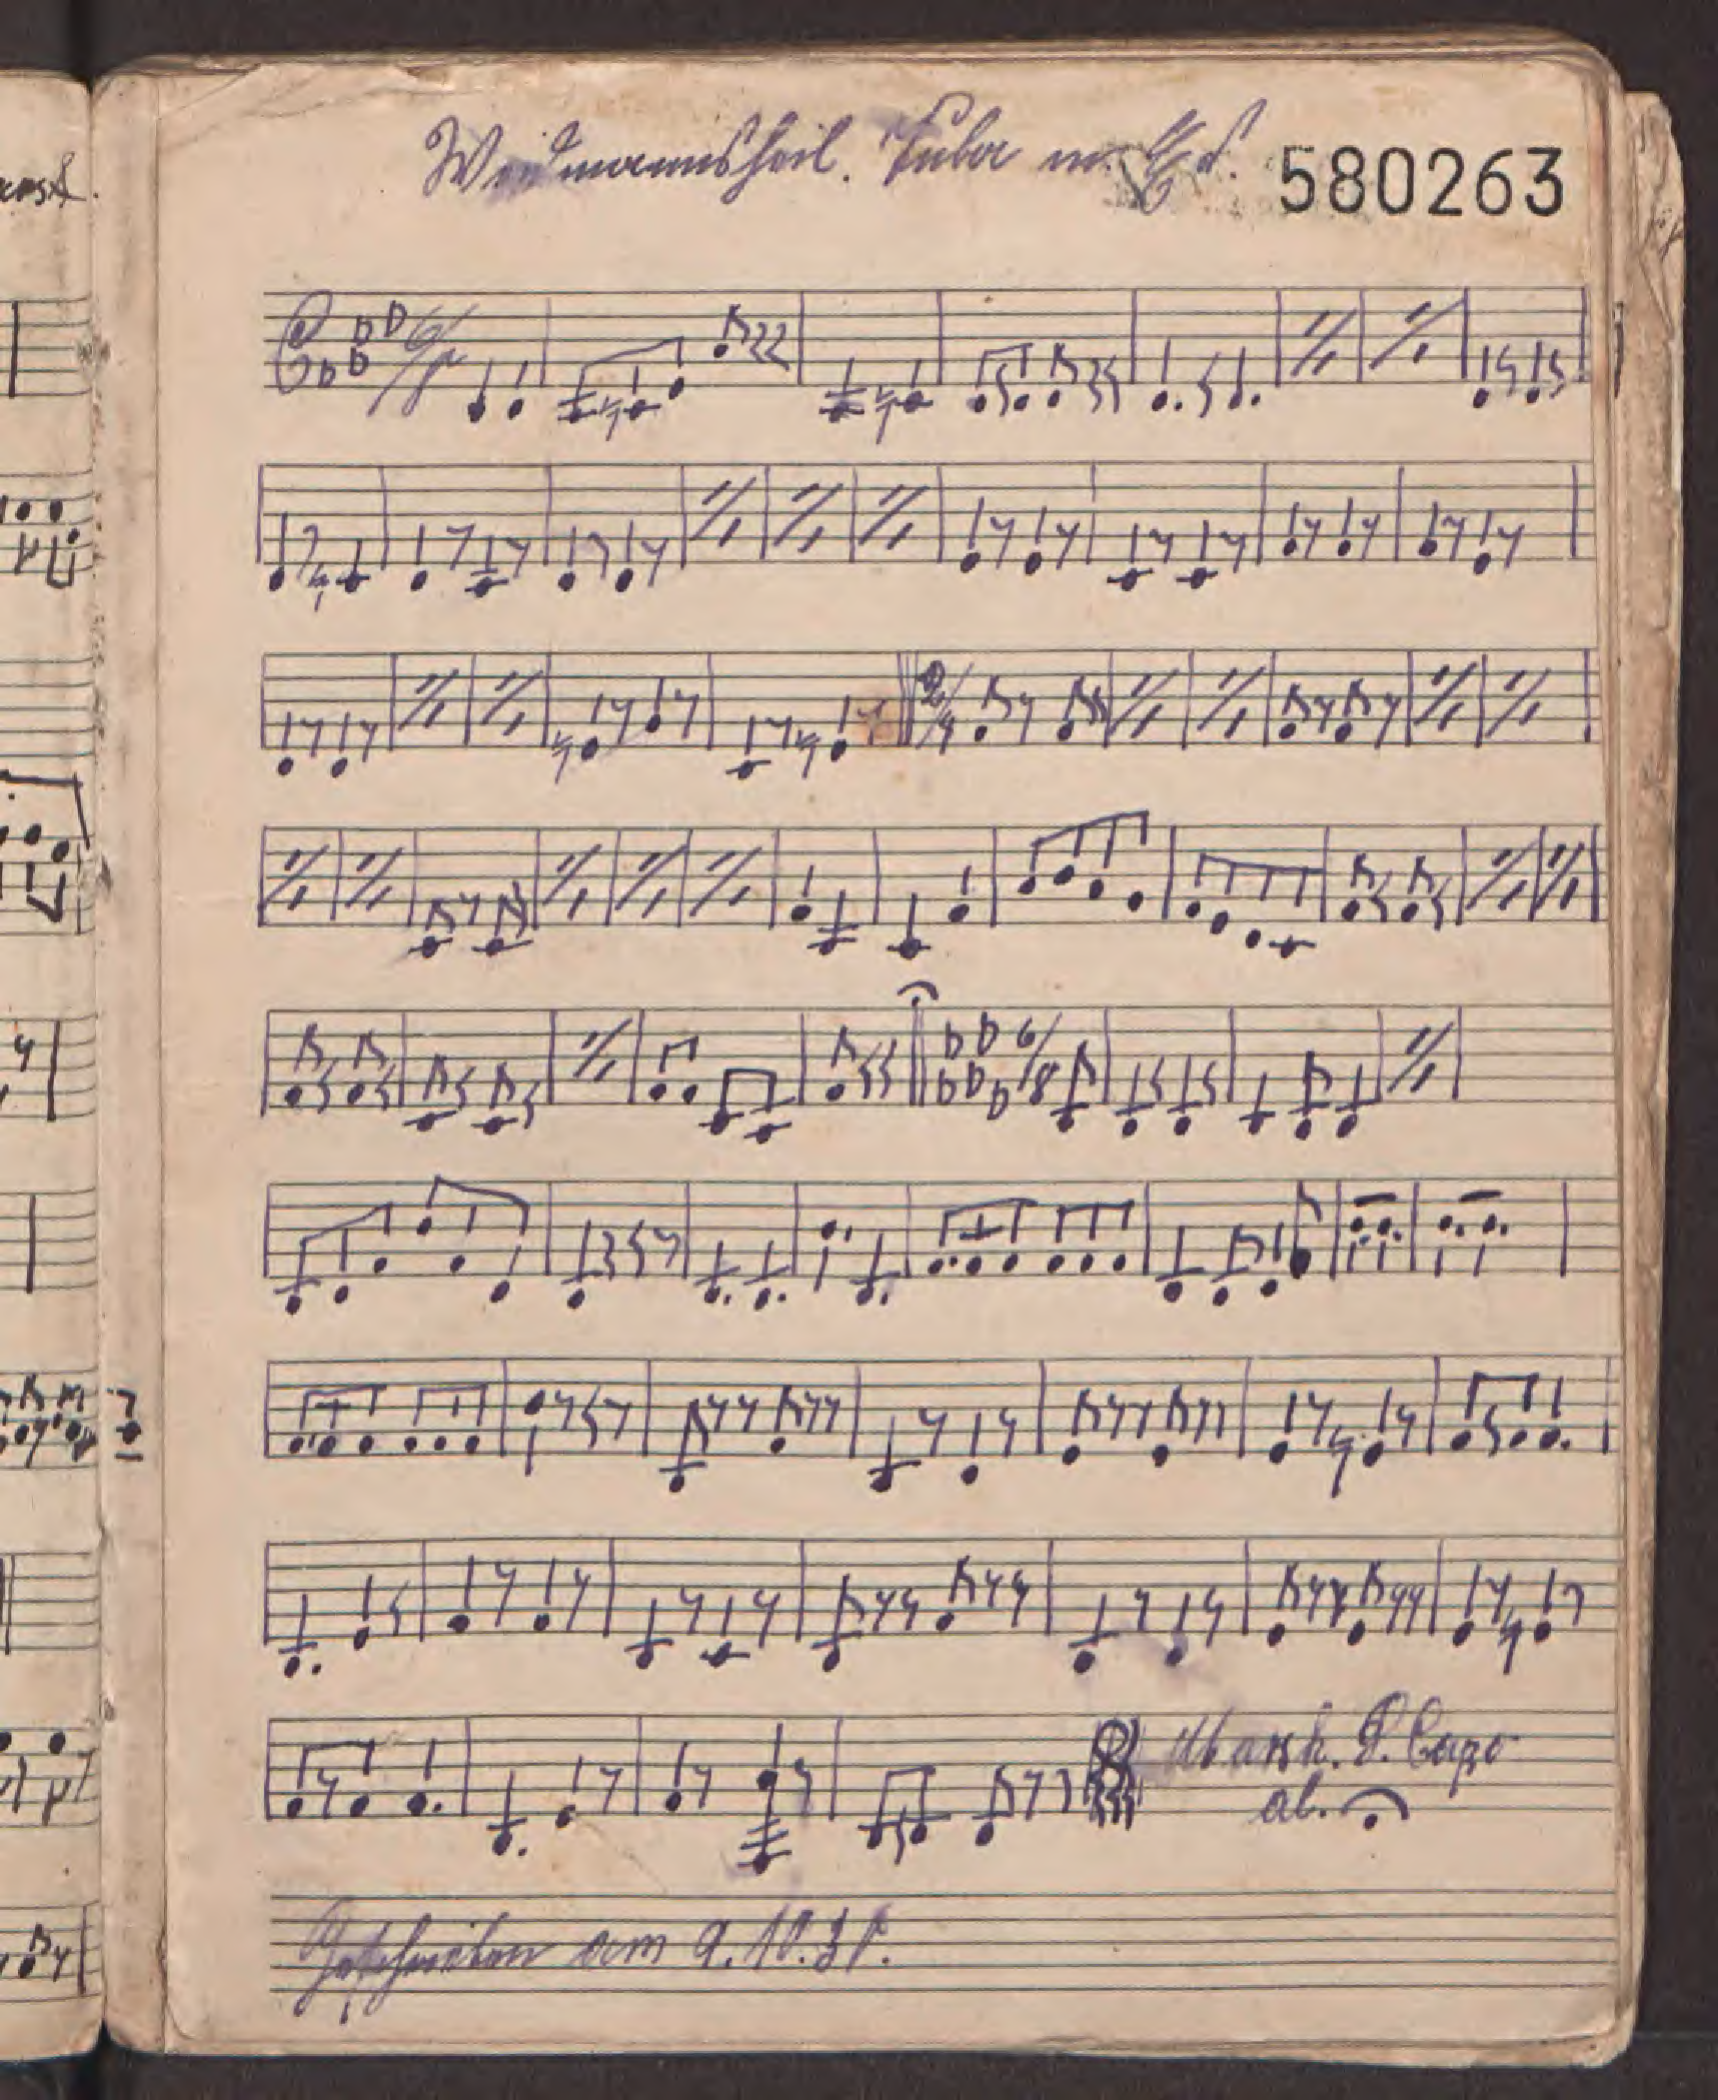 Weidmannsheil. Tuba in Es.
580263
6/8
2/4
6/8
Marsch. D. Capo
al.
Geschrieben am 9.10.38.